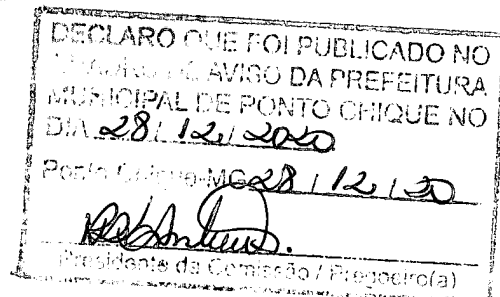 DECLARO QUE FOI PUBLICADO NO
QUADRO DE AVISO DA PREFEITURA
MUNICIPAL DE PONTO CHIQUE NO
DIA 28 / 12 / 2020
Ponto Chique-MG 28 / 12 / 20
Presidente da Comissão / Pregoeiro(a)